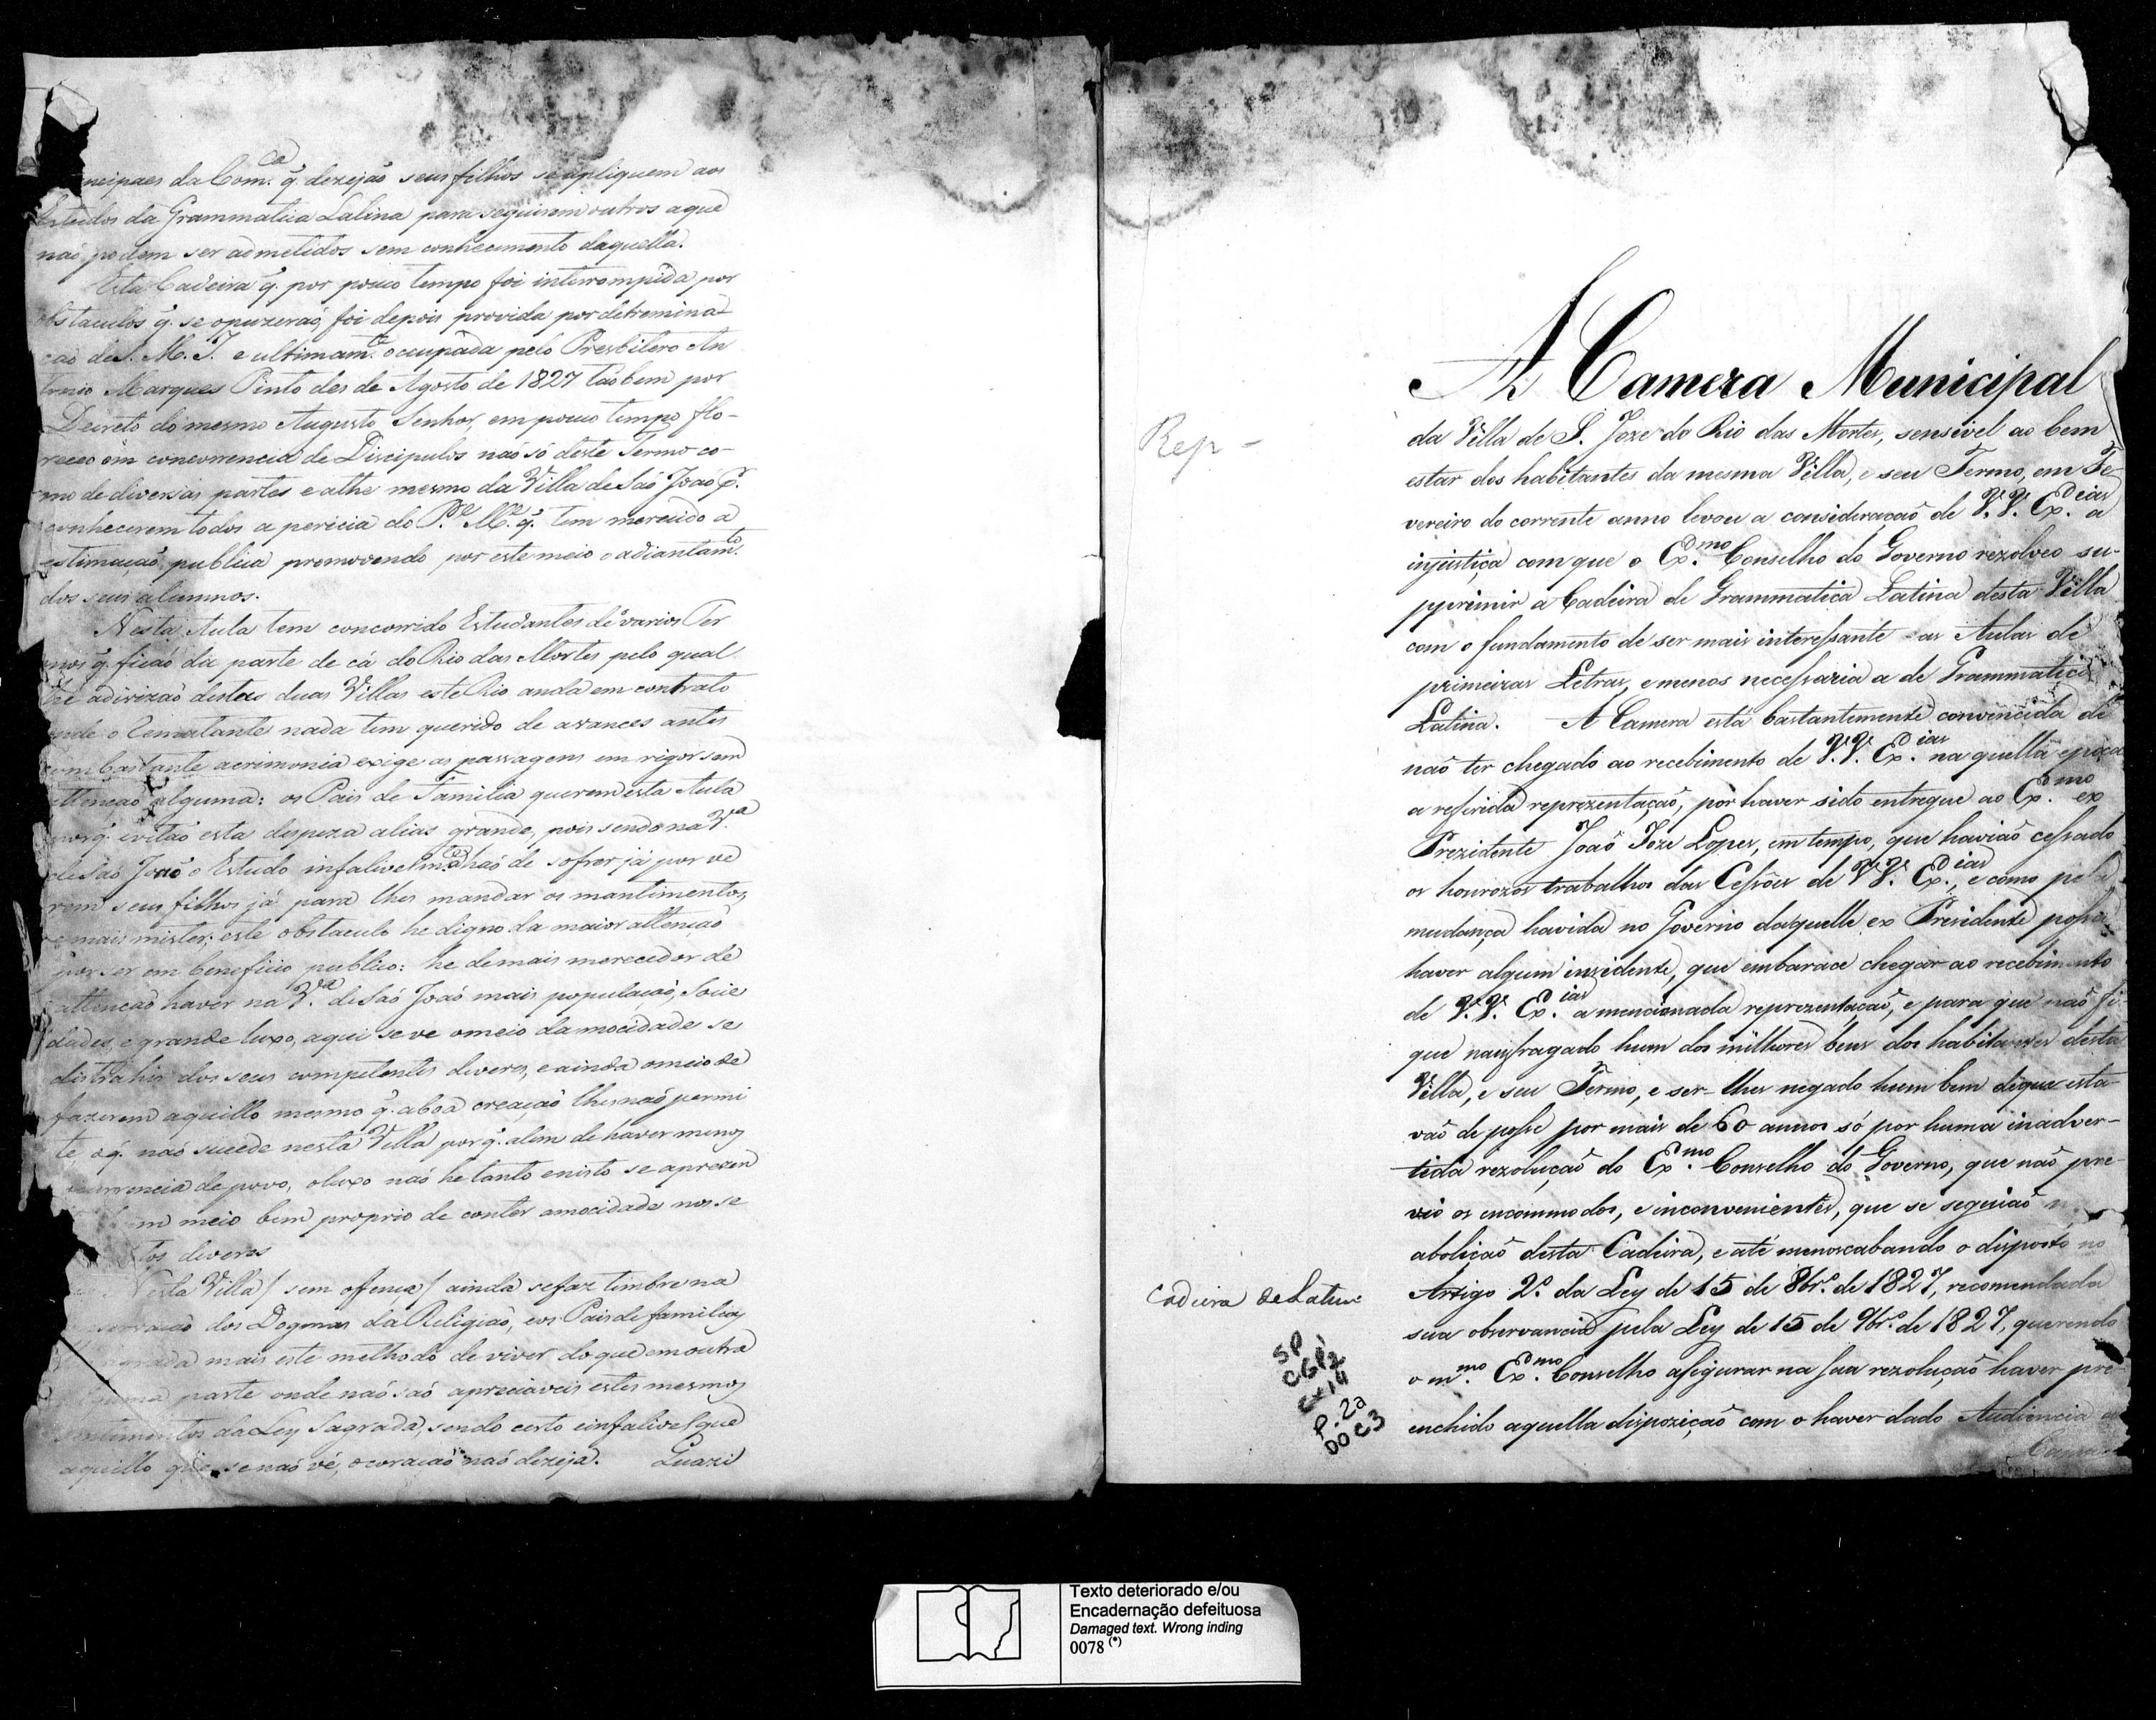 ncipaes da Com.ca q. dezejão seus filhos se apliquem aos
Estudos da Grammatica Latina para seguirem outros a que
não podem ser admetidos sem conhecimento daquella.
Esta Cadeira q. por pouco tempo foi interrompida por
obstaculos q. se opuzerão, foi depois provida por detremina
ção de S. M. I. e ultimam.te occupada pelo Presbitero An
tonio Marques Pinto des de Agosto de 1827 tãobem por
Decreto do mesmo Augusto Senhor, em pouco tempo flo-
receo em concorrencia de Discipulos não só deste Termo co-
mo de diversas partes e athe mesmo da Villa de São João p.r
conhecerem todos a pericia do P.e M.e q. tem merecido a
estimação publica promovendo por este meio o adiantam.to
dos seus alumnos.
Nesta Aula tem concorrido Estudantes de varios Ter
mos q. ficão da parte de cá do Rio das Mortes pelo qual
he a divizão destas duas Villas este Rio anda em contrato
onde o Rematante nada tem querido de avances antes
com bastante acrimonia exige as passagens em rigor sem
attenção alguma: os Pais de Familia querem esta Aula
porq. evitão esta despeza alias grande, pois sendo na V.a
de São João o Estudo infalivelm.te hão de sofrer já por ve
rem seus filhos já para lhes mandar os mantimentos,
e mais mister; este obstaculo he digno da maior attenção
por ser em beneficio publico: he demais merecedor de
attenção haver na V.a de São João mais população, Socie
dades, e grande luxo, aqui se ve o meio da mocidade se
distrahir dos seus competentes deveres, e ainda o meio de
fazerem aquillo mesmo q. a boa creação lhes não permi
te, o q. não sucede nesta Villa por q. alem de haver menos
concorrencia de povo, o luxo não he tanto e nisto se aprezen
hum meio bem proprio de conter a mocidade nos se
tos deveres
Nesta Villa / sem offença / ainda se faz timbre na
dos Dogmas da Religião, e os Pais de familia
mais este methodo de viver do que em outra
alguma parte onde não são apreciaveis estes mesmos
sentimentos da Ley Sagrada, sendo certo e infalivel que
aquillo que se não vê, o coração não dezeja. Quazi
Rep -
A Camera Municipal
da Villa de S. Joze do Rio das Mortes, sensivel ao bem
estar dos habitantes da mesma Villa, e seu Termo, em Fe
vereiro do corrente anno levou a consideração de V.V. Ex.cias a
injustiça com que o Ex.mo Conselho do Governo rezolveo su-
pprimir a Cadeira de Grammatica Latina desta Villa
com o fundamento de ser mais interessante as Aulas de
primeiras Letras, e menos necessaria a de Grammatica
Latina. A Camera está bastantemente convencida de
não ter chegado ao recebimento de V.V. Ex.cias na quella epoca
a referida reprezentação, por haver sido entregue ao Ex.mo ex
Prezidente João Joze Lopes, em tempo, que havião cessado
os honrozos trabalhos das Cessões de V.V. Ex.cias, e como pela
mudança havida no Governo daquelle ex Presidente possa
haver algum insidente, que embarace chegar ao recebimento
de V.V. Ex.cias a mencionada reprezentação, e para que não fi-
que naufragado hum dos milhores bens dos habitantes desta
Villa, e seu Termo, e ser-lhes negado hum bem de que esta-
vão de posse por mais de 60 annos só por huma inadver-
tida rezolução do Ex.mo Conselho do Governo, que não pre-
vio os encommodos, e inconvenientes, que se seguião n
abolição desta Cadeira, e até menoscabando o disposto no
Artigo 2.º da Ley de 15 de 8br.º de 1827, recomendada
sua observancia pela Ley de 15 de 9br.º de 1827, querendo
o m.mo Ex.mo Conselho assigurar na sua rezolução haver pre-
enchido aquella dispozição com o haver dado Audiencia as
Camera
Cadeira de Latim
SP
CGP2
Cx 14
P. 2a
DOC3
Texto deteriorado e/ou
Encadernação defeituosa
Damaged text. Wrong inding
0078 (*)